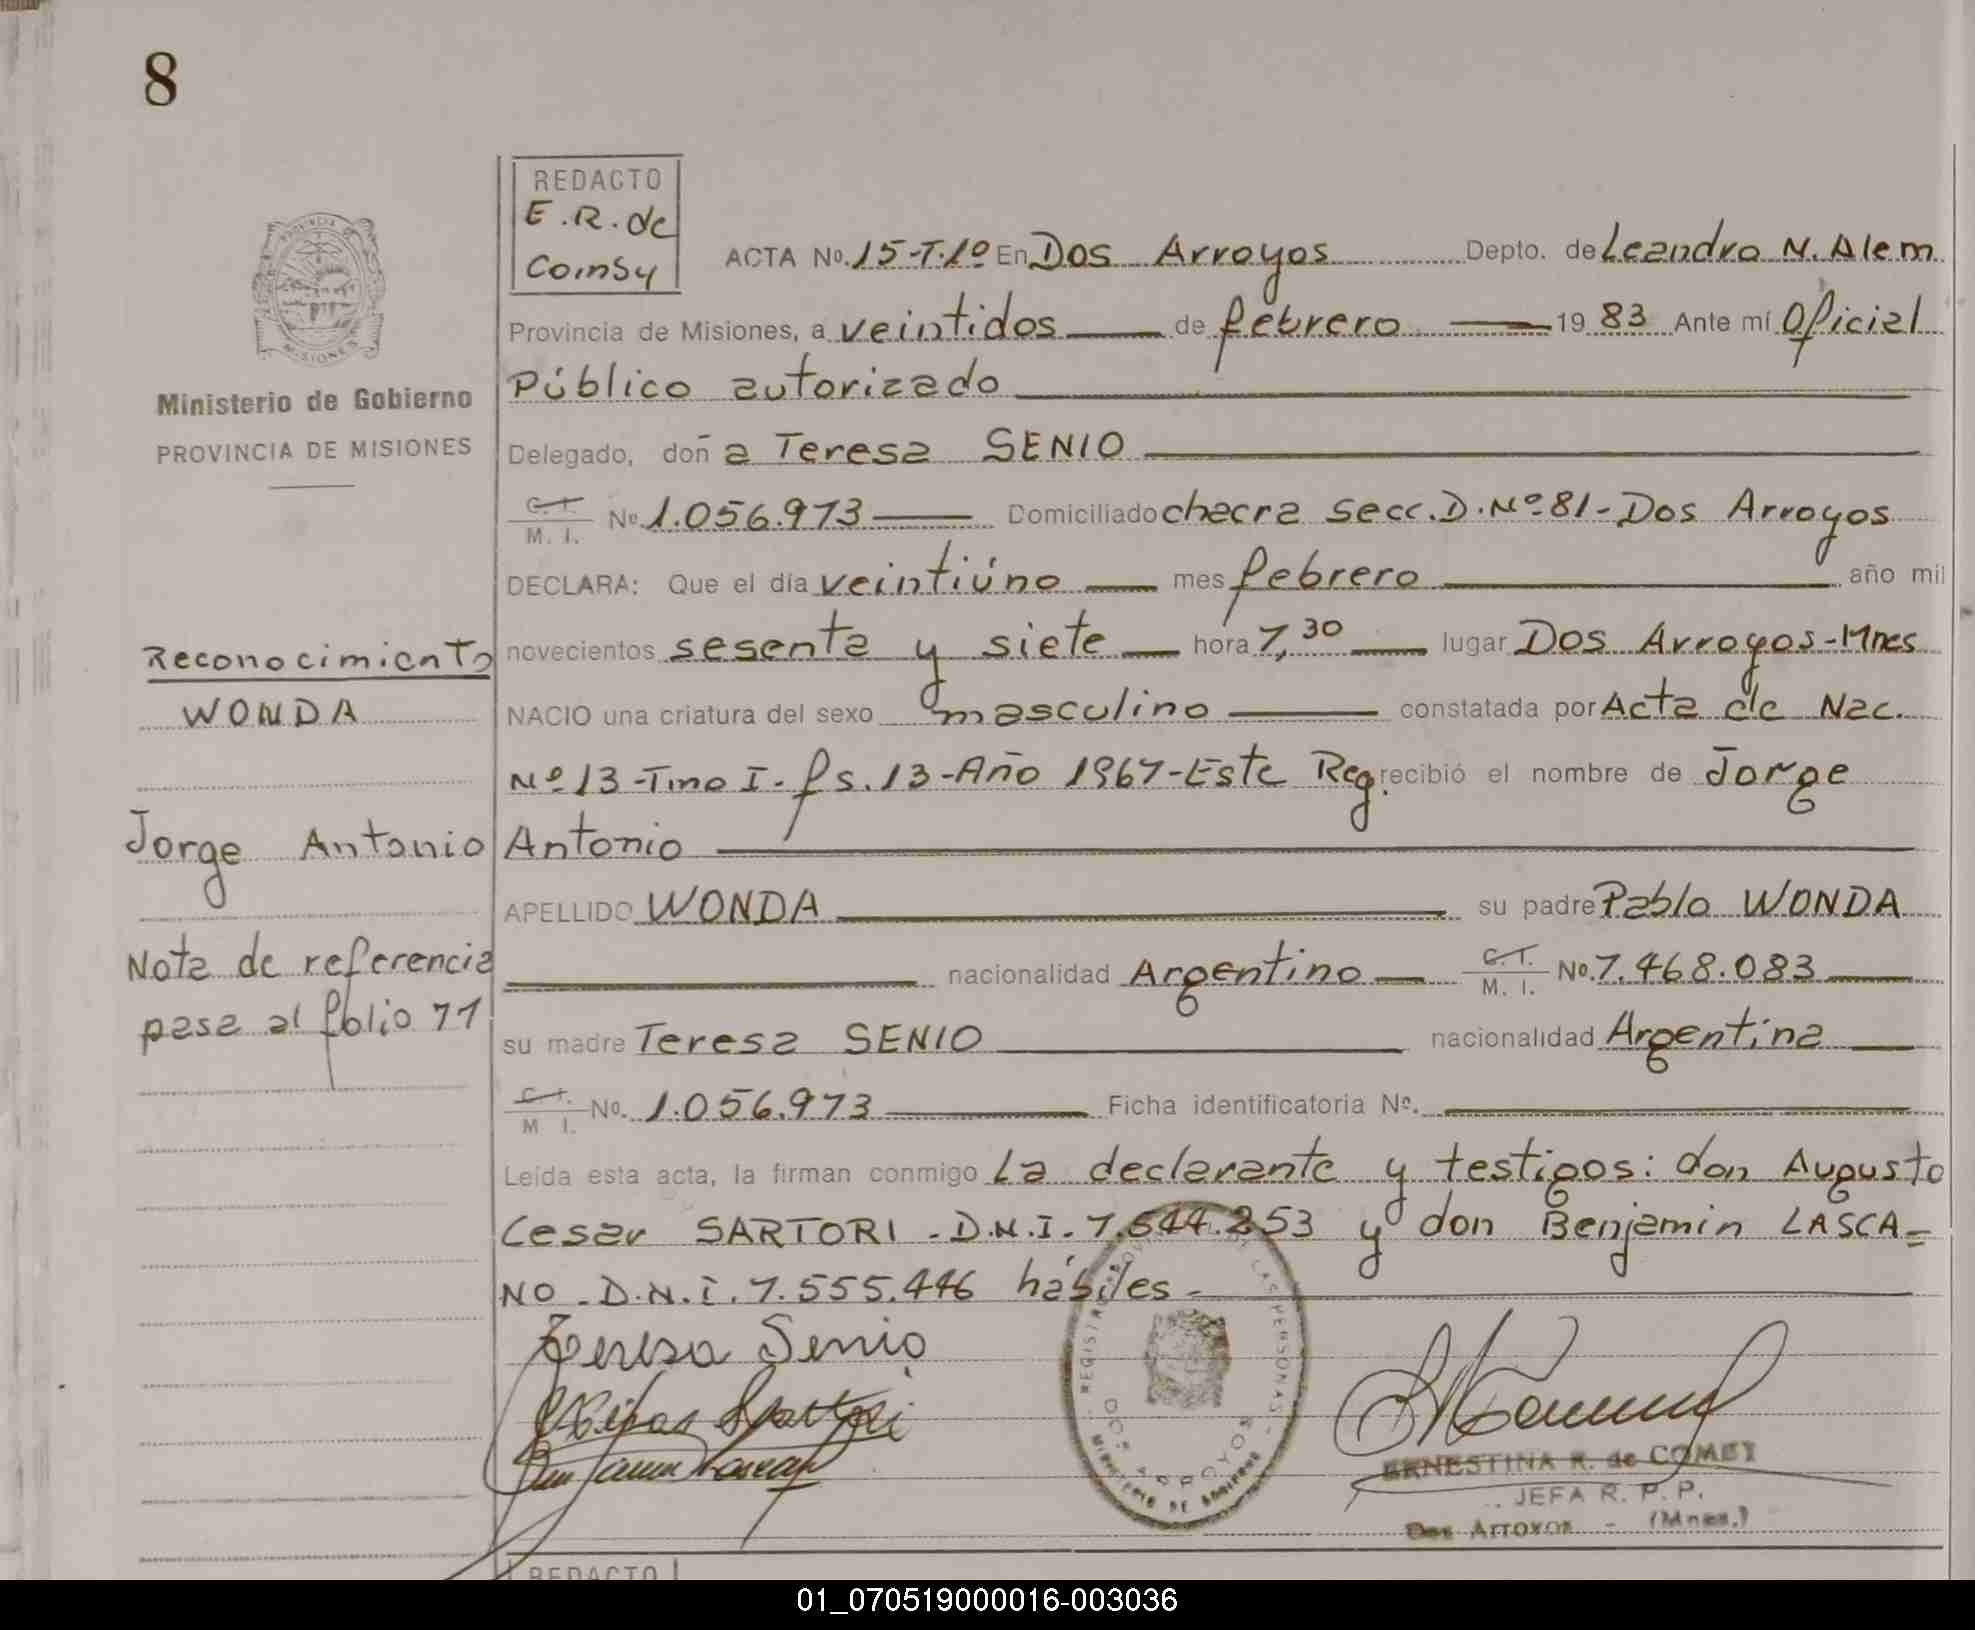 8
REDACTO
E.R. de
Comsy
ACTA No. 15-T.1º En Dos Arroyos Depto. de Leandro N. Alem
Provincia de Misiones, a veintidos de febrero 19 83 Ante mí Oficial
Público autorizado
Ministerio de Gobierno
PROVINCIA DE MISIONES
Delegado, doñ a Teresa SENIO
C.I. M. I. No. 1.056.973 Domiciliado chacra secc. D. Nº 81 - Dos Arroyos
DECLARA: Que el día veintiúno mes febrero año mil
novecientos sesenta y siete hora 7,30 lugar Dos Arroyos-Mnes
Reconocimiento
WONDA
NACIO una criatura del sexo masculino constatada por Acta de Nac.
Nº 13-Tmo I-fs. 13-Año 1967-Este Reg. recibió el nombre de Jorge
Jorge Antonio
Antonio
APELLIDO WONDA su padre Pablo WONDA
Nota de referencia
pasa al folio 71
nacionalidad Argentino C.I. M. I. No. 7.468.083
su madre Teresa SENIO nacionalidad Argentina
C.I. M I. No. 1.056.973 Ficha identificatoria No.
Leída esta acta, la firman conmigo La declarante y testigos: don Augusto
Cesar SARTORI - D.N.I. 7.544.253 y don Benjamin LASCA=
NO - D.N.I. 7.555.446 hábiles -
Teresa Senio
ERNESTINA R. de COMEY
JEFA R. P. P.
Dos Arroyos - (Mnes.)
DOS ARROYOS
REDACTO
01_070519000016-003036